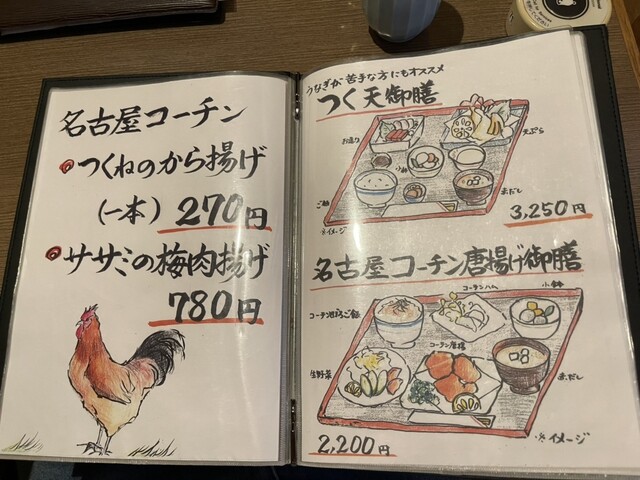 名古屋コーチン
つくねのから揚げ
(一本) 270円
ササミの梅肉揚げ
780円
うなぎが苦手な方にもオススメ
つく天御膳
お造り
天ぷら
ご飯
赤だし
※イメージ
3,250円
名古屋コーチン唐揚げ御膳
コーチンハム
小鉢
コーチン唐揚
生野菜
赤だし
※イメージ
2,200円